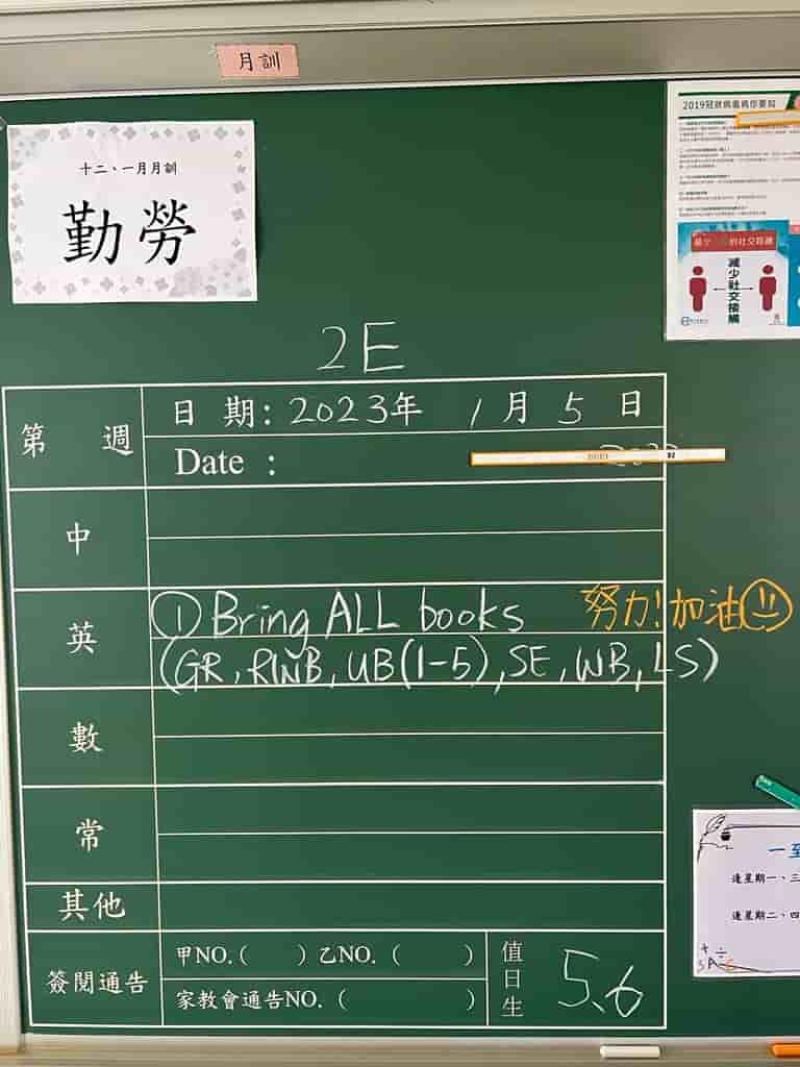 月訓
十二、一月月訓
勤勞
2019冠狀病毒病你要知
減少社交接觸
2E
第 週
日 期：2023年 1月 5 日
Date ：
中
英
① Bring ALL books 努力!加油
(GR, RWB, UB(1-5), SE, WB, LS)
數
常
其他
簽閱通告
甲NO.( ) 乙NO.( )
家教會通告NO.( )
值日生
5、6
一至
逢星期一、三
逢星期二、四